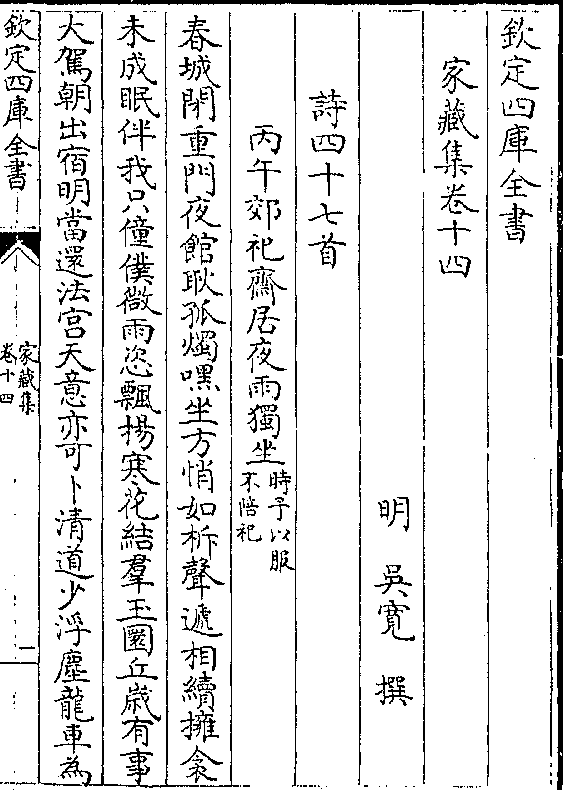 欽定四庫全書
家藏集卷十四
明 吳寛 撰
詩四十七首
丙午郊祀齋居夜雨獨坐時予以服不陪祀
春城閉重門夜館耿孤燭嘿坐方悄如柝聲遞相續擁衾
未成眠伴我只僮僕微雨恣飄揚寒花結羣玉圜丘歳有事
大駕朝出宿明當還法宫天意亦可卜清道少浮塵龍車為
欽定四庫全書
家藏集
卷十四
一